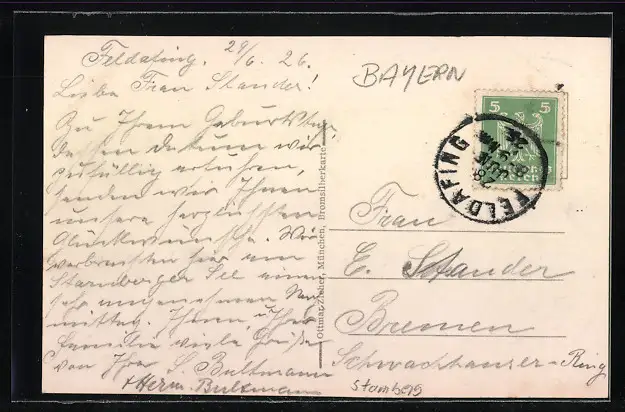 Feldafing. 29/6. 26.
Liebe Frau Stander!
Zu Ihrem Geburtstage,
dessen Datum wir
zufällig erfuhren,
senden wir Ihnen
unsere herzlichsten
Glückwünsche. Wir
verbrachten hier am
Starnberger See einen
sehr angenehmen Nach
mittag. Ihnen u. Ihrer
Familie viele Grüße
von Ihrer S. Bultmann
+ Herm. Bultmann
Ottmar Zieher, München, Bromsilberkarte
BAYERN
5 5
FELDAFING
Frau
E. Stander
Bremen
Schwachhauser-Ring
Starnberg